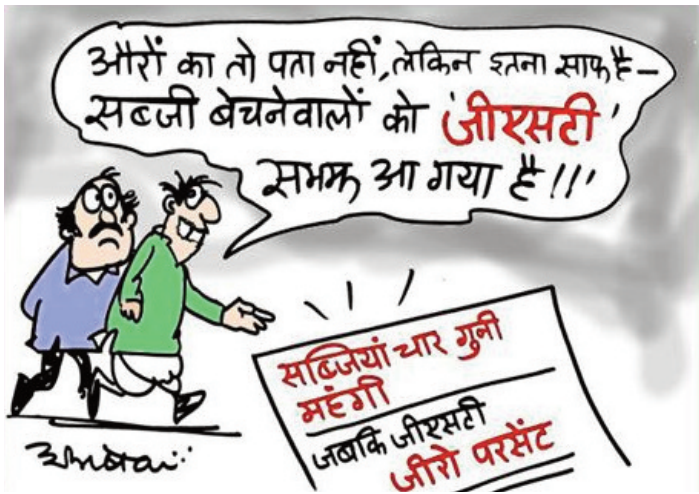 औरों का तो पता नहीं, लेकिन इतना साफ है –
सब्जी बेचनेवालों को 'जीएसटी'
समझ आ गया है !!!'
सब्जियां चार गुनी
महंगी
जबकि जीएसटी
जीरो परसेंट